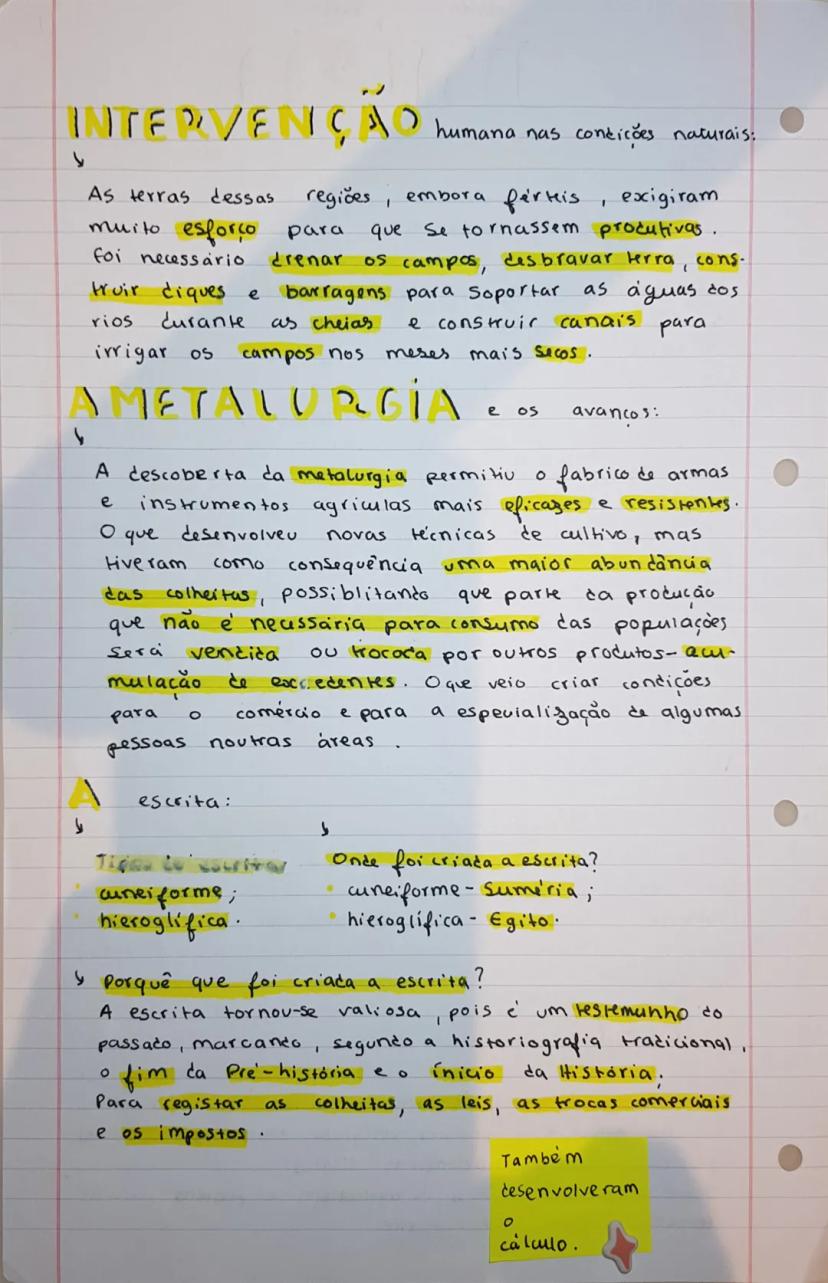 INTERVENÇÃO humana nas condições naturais:
As terras dessas regiões, embora férteis, exigiram
muito esforço para que se tornassem produtivas.
foi necessário drenar os campos, desbravar terra, cons-
truir diques e barragens para soportar as águas dos
rios durante as cheias e construir canais para
irrigar os campos nos meses mais secos.
A METALURGIA e os avanços:
A descoberta da metalurgia permitiu o fabrico de armas
e instrumentos agriculas mais eficazes e resistentes.
O que desenvolveu novas técnicas de cultivo, mas
tiveram como consequência uma maior abundância
das colheitas, possiblitando que parte da produção
que não é necessária para consumo das populações
será vendida ou trocada por outros produtos - acu-
mulação de excedentes. O que veio criar condições
para o comércio e para a especialização de algumas
pessoas noutras áreas.
A escrita:
Tipos de escrita:
cuneiforme;
hieroglífica.
Onde foi criada a escrita?
cuneiforme - Suméria;
hieroglífica - Egito.
Porquê que foi criada a escrita?
A escrita tornou-se valiosa, pois é um testemunho do
passado, marcando, segundo a historiografia tradicional,
o fim da Pré-história e o ínicio da História.
Para registar as colheitas, as leis, as trocas comerciais
e os impostos.
Também
desenvolveram
o
cálculo.